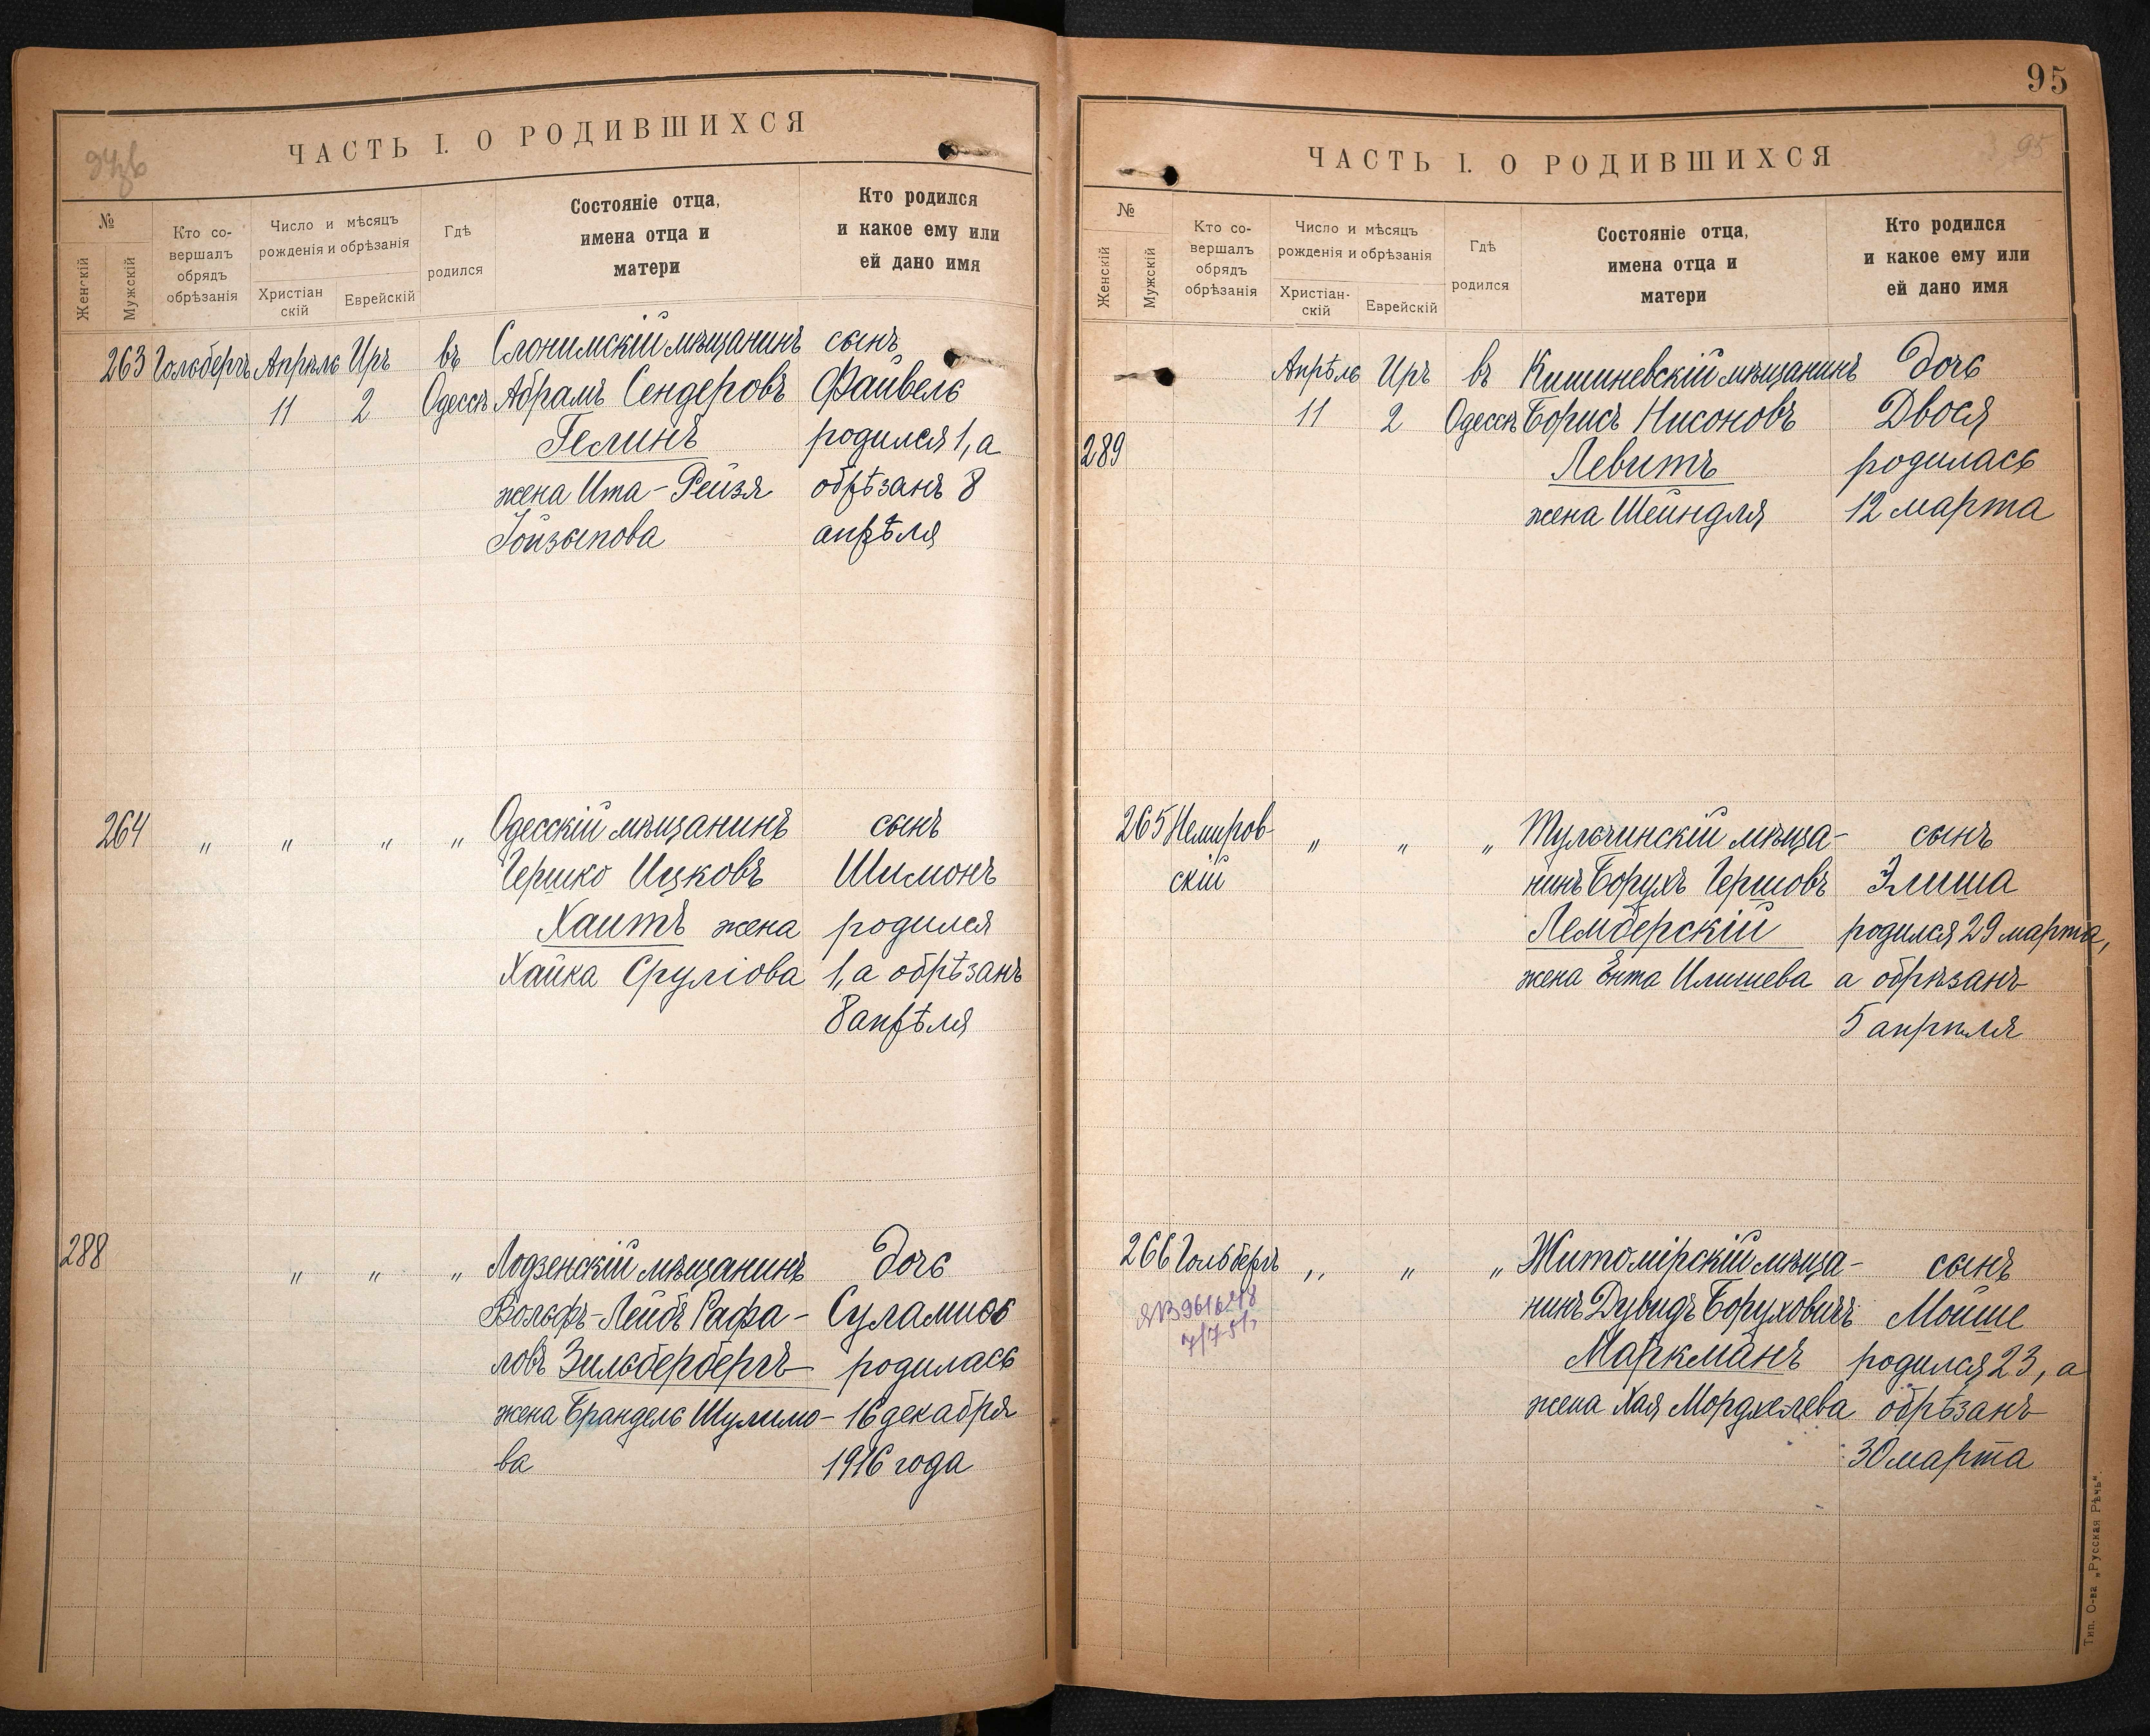 ЧАСТЬ I. О РОДИВШИХСЯ
№
Женскій
Мужскій
Кто со-
вершалъ
обрядъ
обрѣзанія
Число и мѣсяцъ
рожденія и обрѣзанія
Христіан
скій
Еврейскій
Гдѣ
родился
Состояніе отца,
имена отца и
матери
Кто родился
и какое ему или
ей дано имя
263 Гольбергъ Апрѣль Иръ въ Слонимскій мѣщанинъ сынъ
11 2 Одессѣ Абрамъ Сендеровъ Файвель
Гелинъ родился 1, а
жена Ита-Рейзя обрѣзанъ 8
апрѣля
264 „ „ „ „ Одесскій мѣщанинъ сынъ
Гершко Ицковъ Шимонъ
Хаитъ жена родился
Хайка Сруліова 1, а обрѣзанъ
8 апрѣля
288 „ „ „ Лодзенскій мѣщанинъ дочь
Вольфъ-Лейбъ Рафа- Суламиѳь
ловъ Зильбербергъ родилась
жена Брандель Шулимо- 16 декабря
ва 1916 года
95
ЧАСТЬ I. О РОДИВШИХСЯ
95
№
Женскій
Мужскій
Кто со-
вершалъ
обрядъ
обрѣзанія
Число и мѣсяцъ
рожденія и обрѣзанія
Христіан-
скій
Еврейскій
Гдѣ
родился
Состояніе отца,
имена отца и
матери
Кто родился
и какое ему или
ей дано имя
Апрѣль Иръ въ Кишиневскій мѣщанинъ дочь
11 2 Одессѣ Борисъ Нисоновъ Двося
289 Левитъ родилась
жена Шейндля 12 марта
265 Немиров- „ „ „ Тульчинскій мѣща- сынъ
скій нинъ Борухъ Гершовъ Элиша
Лемберскій родился 29 марта,
жена Ента Илишева а обрѣзанъ
5 апрѣля
266 Гольбергъ „ „ „ Житомірскій мѣща- сынъ
нинъ Дувидъ Боруховичъ Мойше
Маркманъ родился 23, а
жена Хая Мордхелева обрѣзанъ
30 марта
Тип. О-ва „Русская Рѣчь".